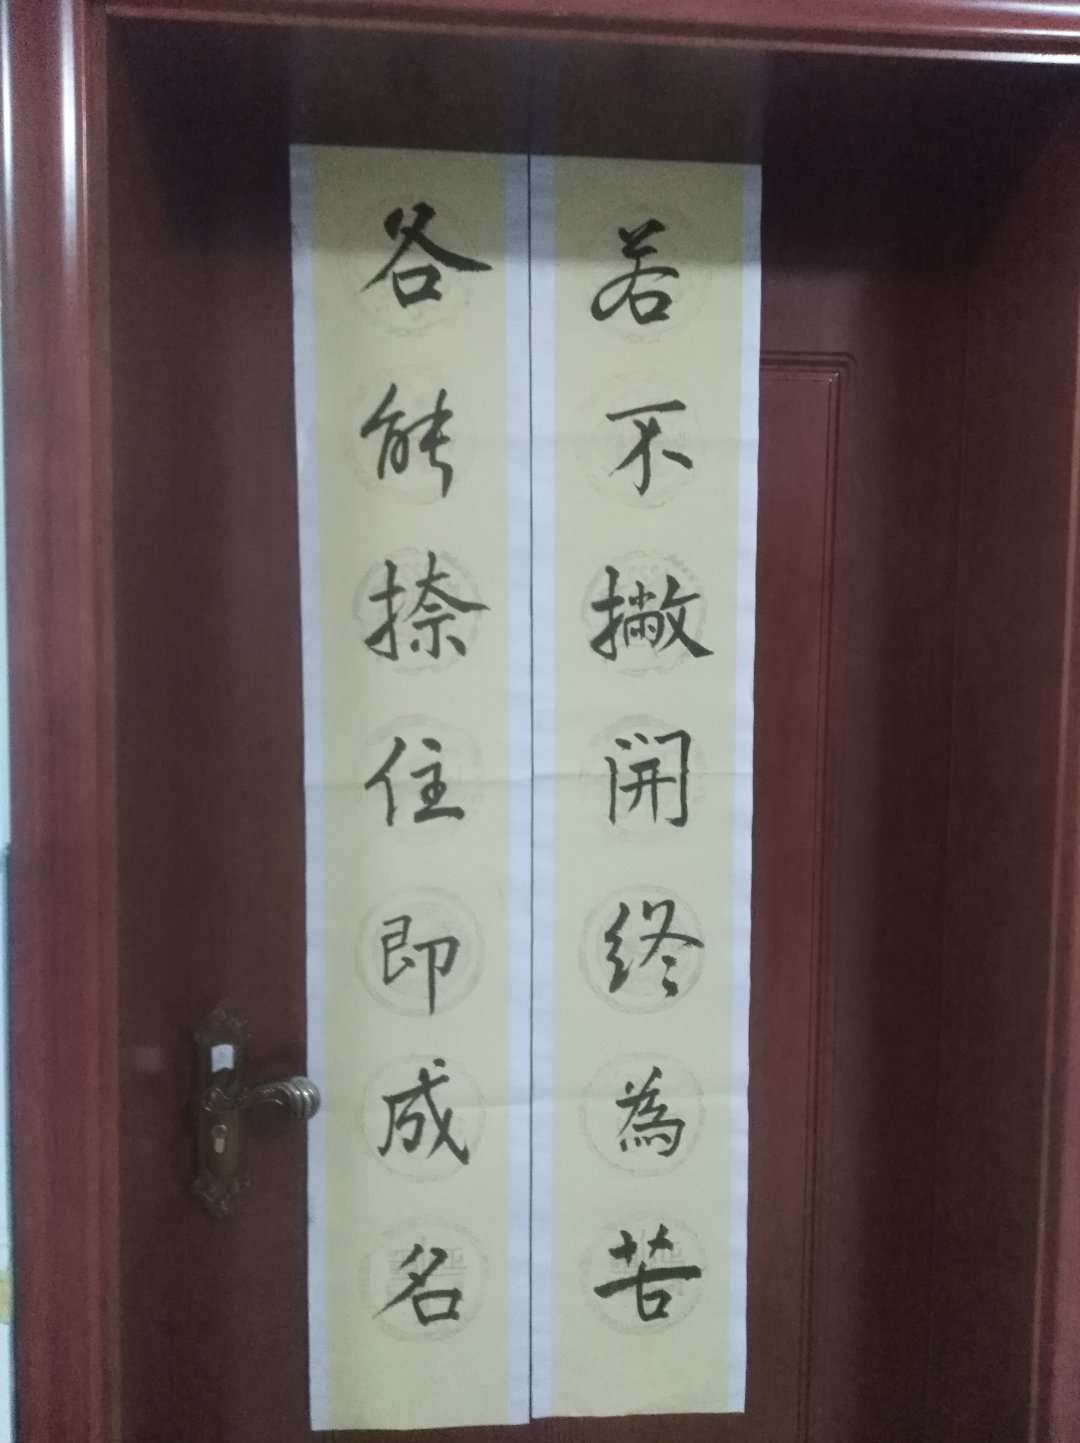 若不撇開终為苦
各能捺住即成名